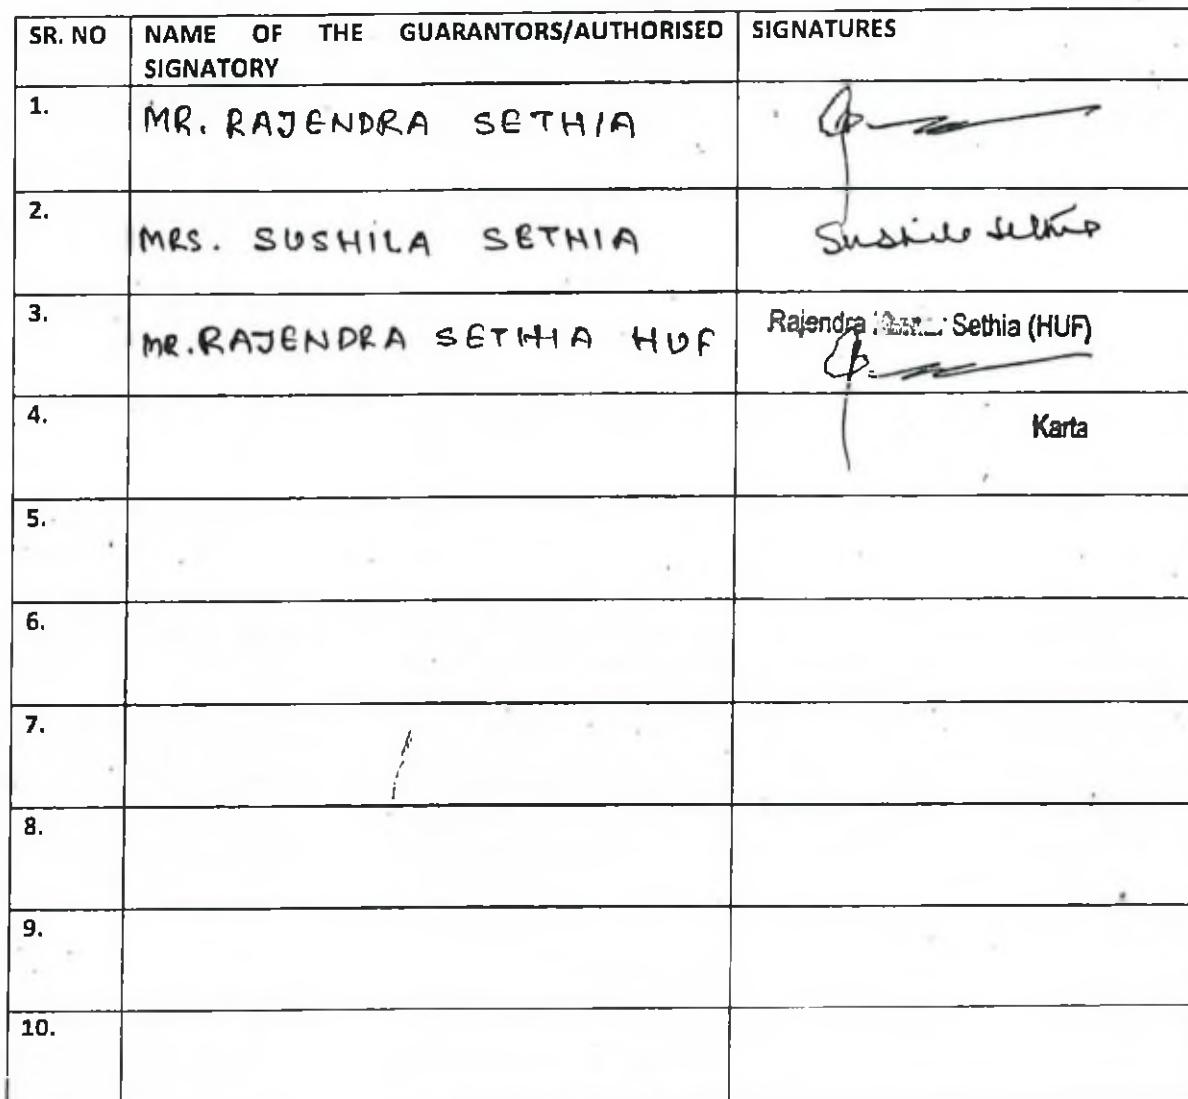 SR. NO NAME OF THE GUARANTORS/AUTHORISED SIGNATORY SIGNATURES
1. MR. RAJENDRA SETHIA
2. MRS. SUSHILA SETHIA Sushila Sethia
3. MR. RAJENDRA SETHIA HUF Rajendra Sethia (HUF)
4. Karta
5.
6.
7.
8.
9.
10.